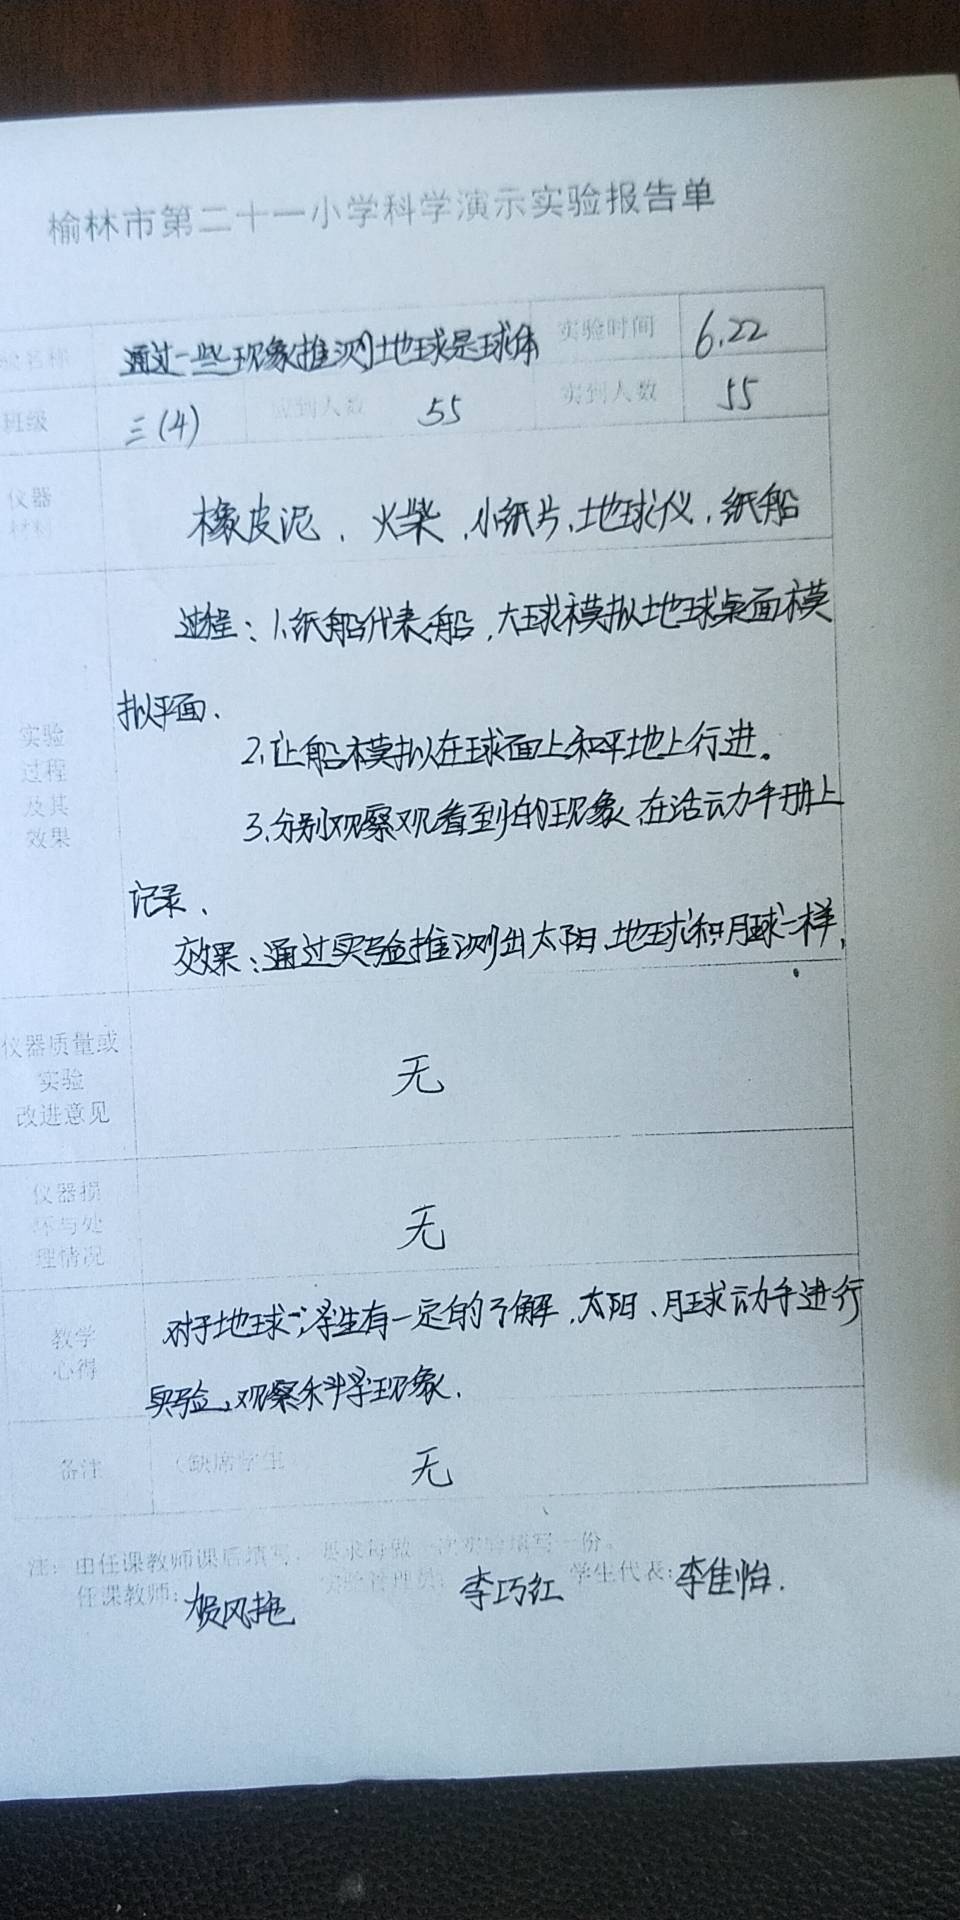 榆林市第二十一小学科学演示实验报告单
名称 通过一些现象推测地球是球体 实验时间 6.22
班级 三(4) 应到人数 55 实到人数 55
仪器
材料
橡皮泥、火柴、小纸片、地球仪、纸船
实验
过程
及其
效果
过程：1、纸船代表船，大球模拟地球桌面模
拟平面、
2、让船模拟在球面上和平地上行进。
3、分别观察观看到的现象、在活动手册上
记录、
效果：通过实验推测出太阳、地球和月球一样，
仪器质量或
实验
改进意见
无
仪器损
坏与处
理情况
无
教学
心得
对于地球，学生有一定的了解，太阳、月球动手进行
实验，观察科学现象．
备注 （缺席学生 无
注：由任课教师课后填写，要求每做一次实验填写一份。
任课教师： 贺风艳 实验管理员： 李巧红 学生代表：李佳怡．